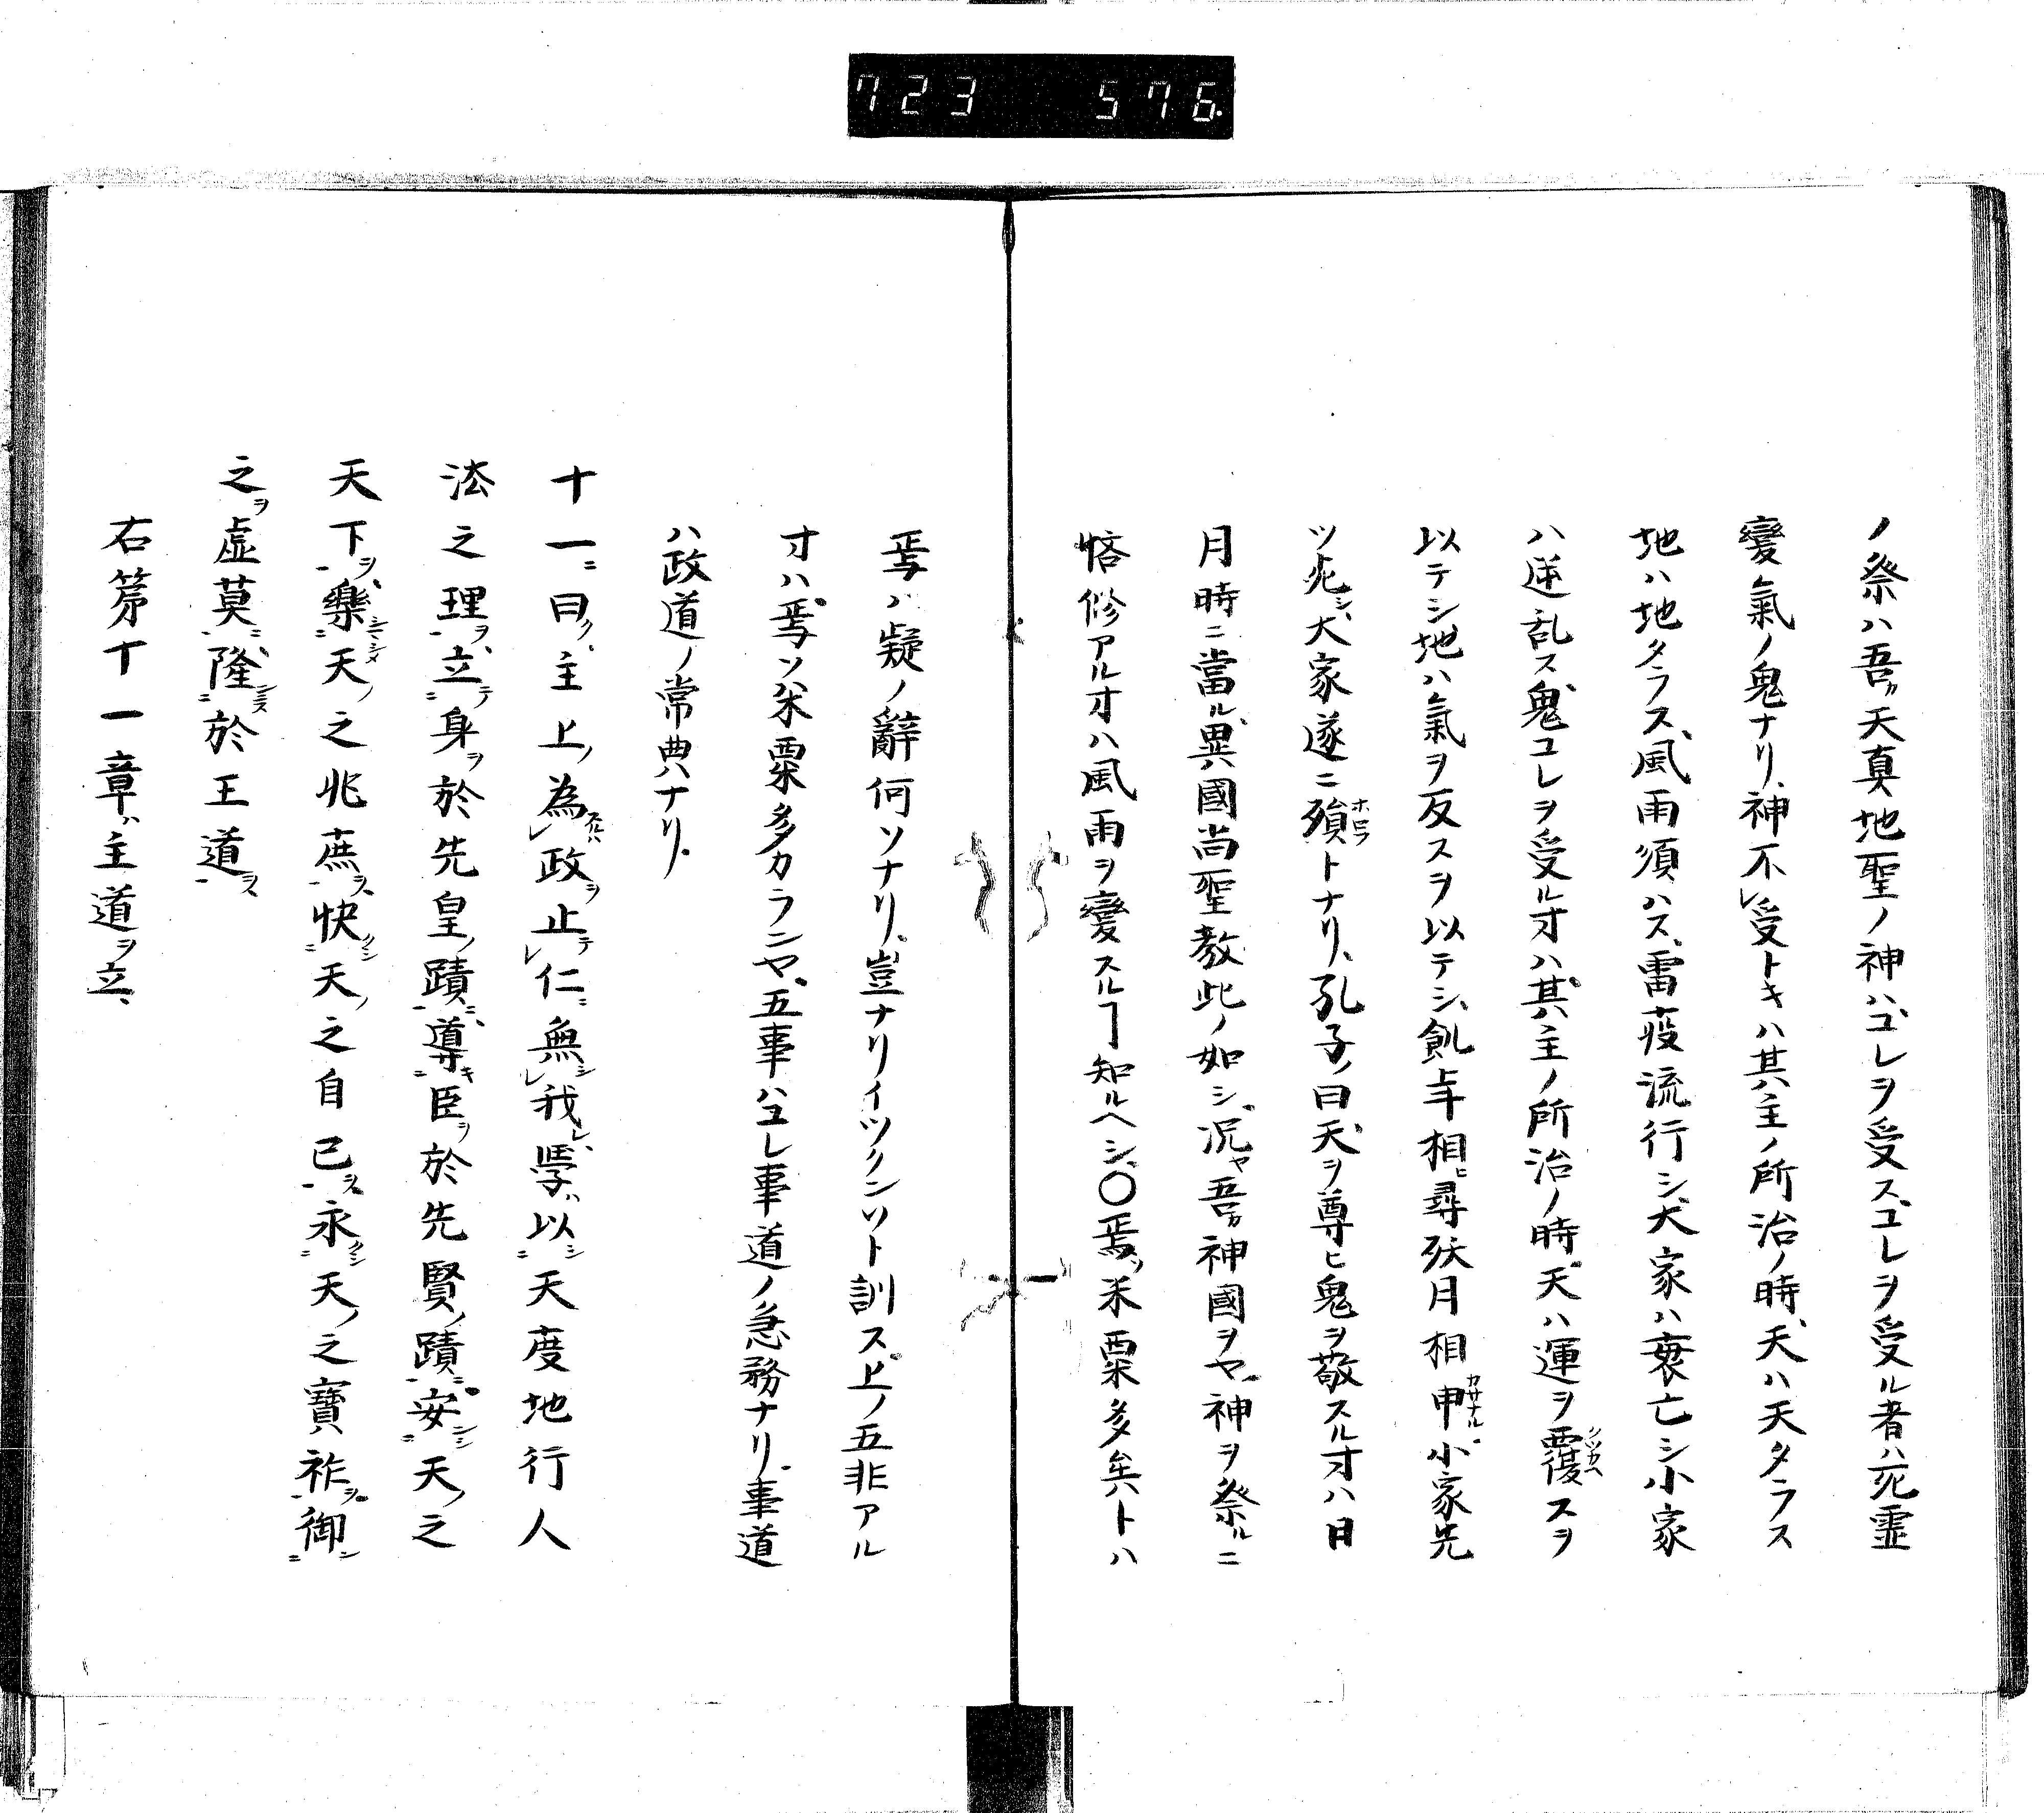 723 576
ノ祭ハ吾カ天真地聖ノ神ハコレヲ受スコレヲ受ル者ハ死霊
變氣ノ鬼ナリ、神不レ受トキハ其ハ主ノ所治ノ時、天ハ天タラス
地ハ地タラス、風雨須ハス、雷疫流行シ大家ハ衰亡シ小家
ハ逆乱ス、鬼コレヲ受ルオハ其ハ主ノ所治ノ時天ハ運ヲ覆スヲ
以テシ地ハ氣ヲ反スヲ以テシ、飢年相ヒ尋殀月相申小家先
ツ死シ大家遂ニ殞トナリ、孔子ノ曰天ヲ尊ヒ鬼ヲ敬スルオハ日
月時ニ當ル、異國尚聖教此ノ如シ、况ヤ吾カ神國ヲヤ、神ヲ祭ルニ
悋修アルオハ風雨ヲ變スルヿ知ルヘシ、〇焉ソ米粟多矣トハ
焉ハ疑ノ辭何ソナリ、豈ナリイツクンソト訓ス、上ノ五非アル
オハ焉ソ米粟多カランヤ、五事ハコレ事道ノ急務ナリ、事道
ハ政道ノ常典ナリ、
十一ニ曰ク、主上ノ為レ政ヲ止テレ仁ニ無シレ我レ、學ハ以シ二天度地行人
法之理ヲ一、立テ二身ヲ於先皇ノ蹟ニ一、導キ二臣ヲ於先賢ノ蹟ニ一、安ンシ二天ノ之
天下ヲ一、樂シマシメ二天ノ之兆庶ヲ一、快クシ二天ノ之自已ヲ一、永クシ二天ノ之寶祚ヲ一、御シ二
之ヲ虚莫ニ一、隆ンニス二於王道ヲ一
右第十一章ハ主道ヲ立、